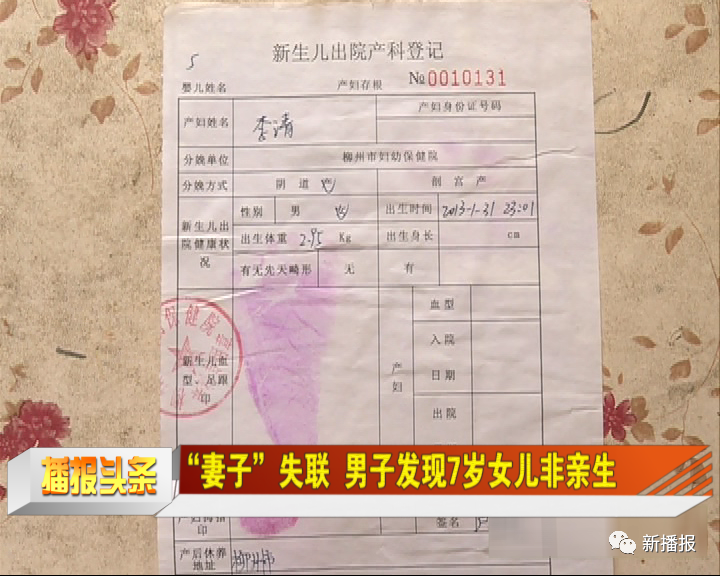 5
新生儿出院产科登记
婴儿姓名 产妇存根 №0010131
产妇姓名 李清 产妇身份证号码
分娩单位 柳州市妇幼保健院
分娩方式 阴道产 剖宫产
新生儿出院健康状况
性别 男 女 出生时间 2013-1-31 23:01
出生体重 2.95 Kg 出生身长 cm
有无先天畸形 无 有
保健院
新生儿血型、足跟印
产妇
血型
入院
日期
出院
“妻子”失联 男子发现7岁女儿非亲生
播报头条
印
签名
产后休养地址
新播报